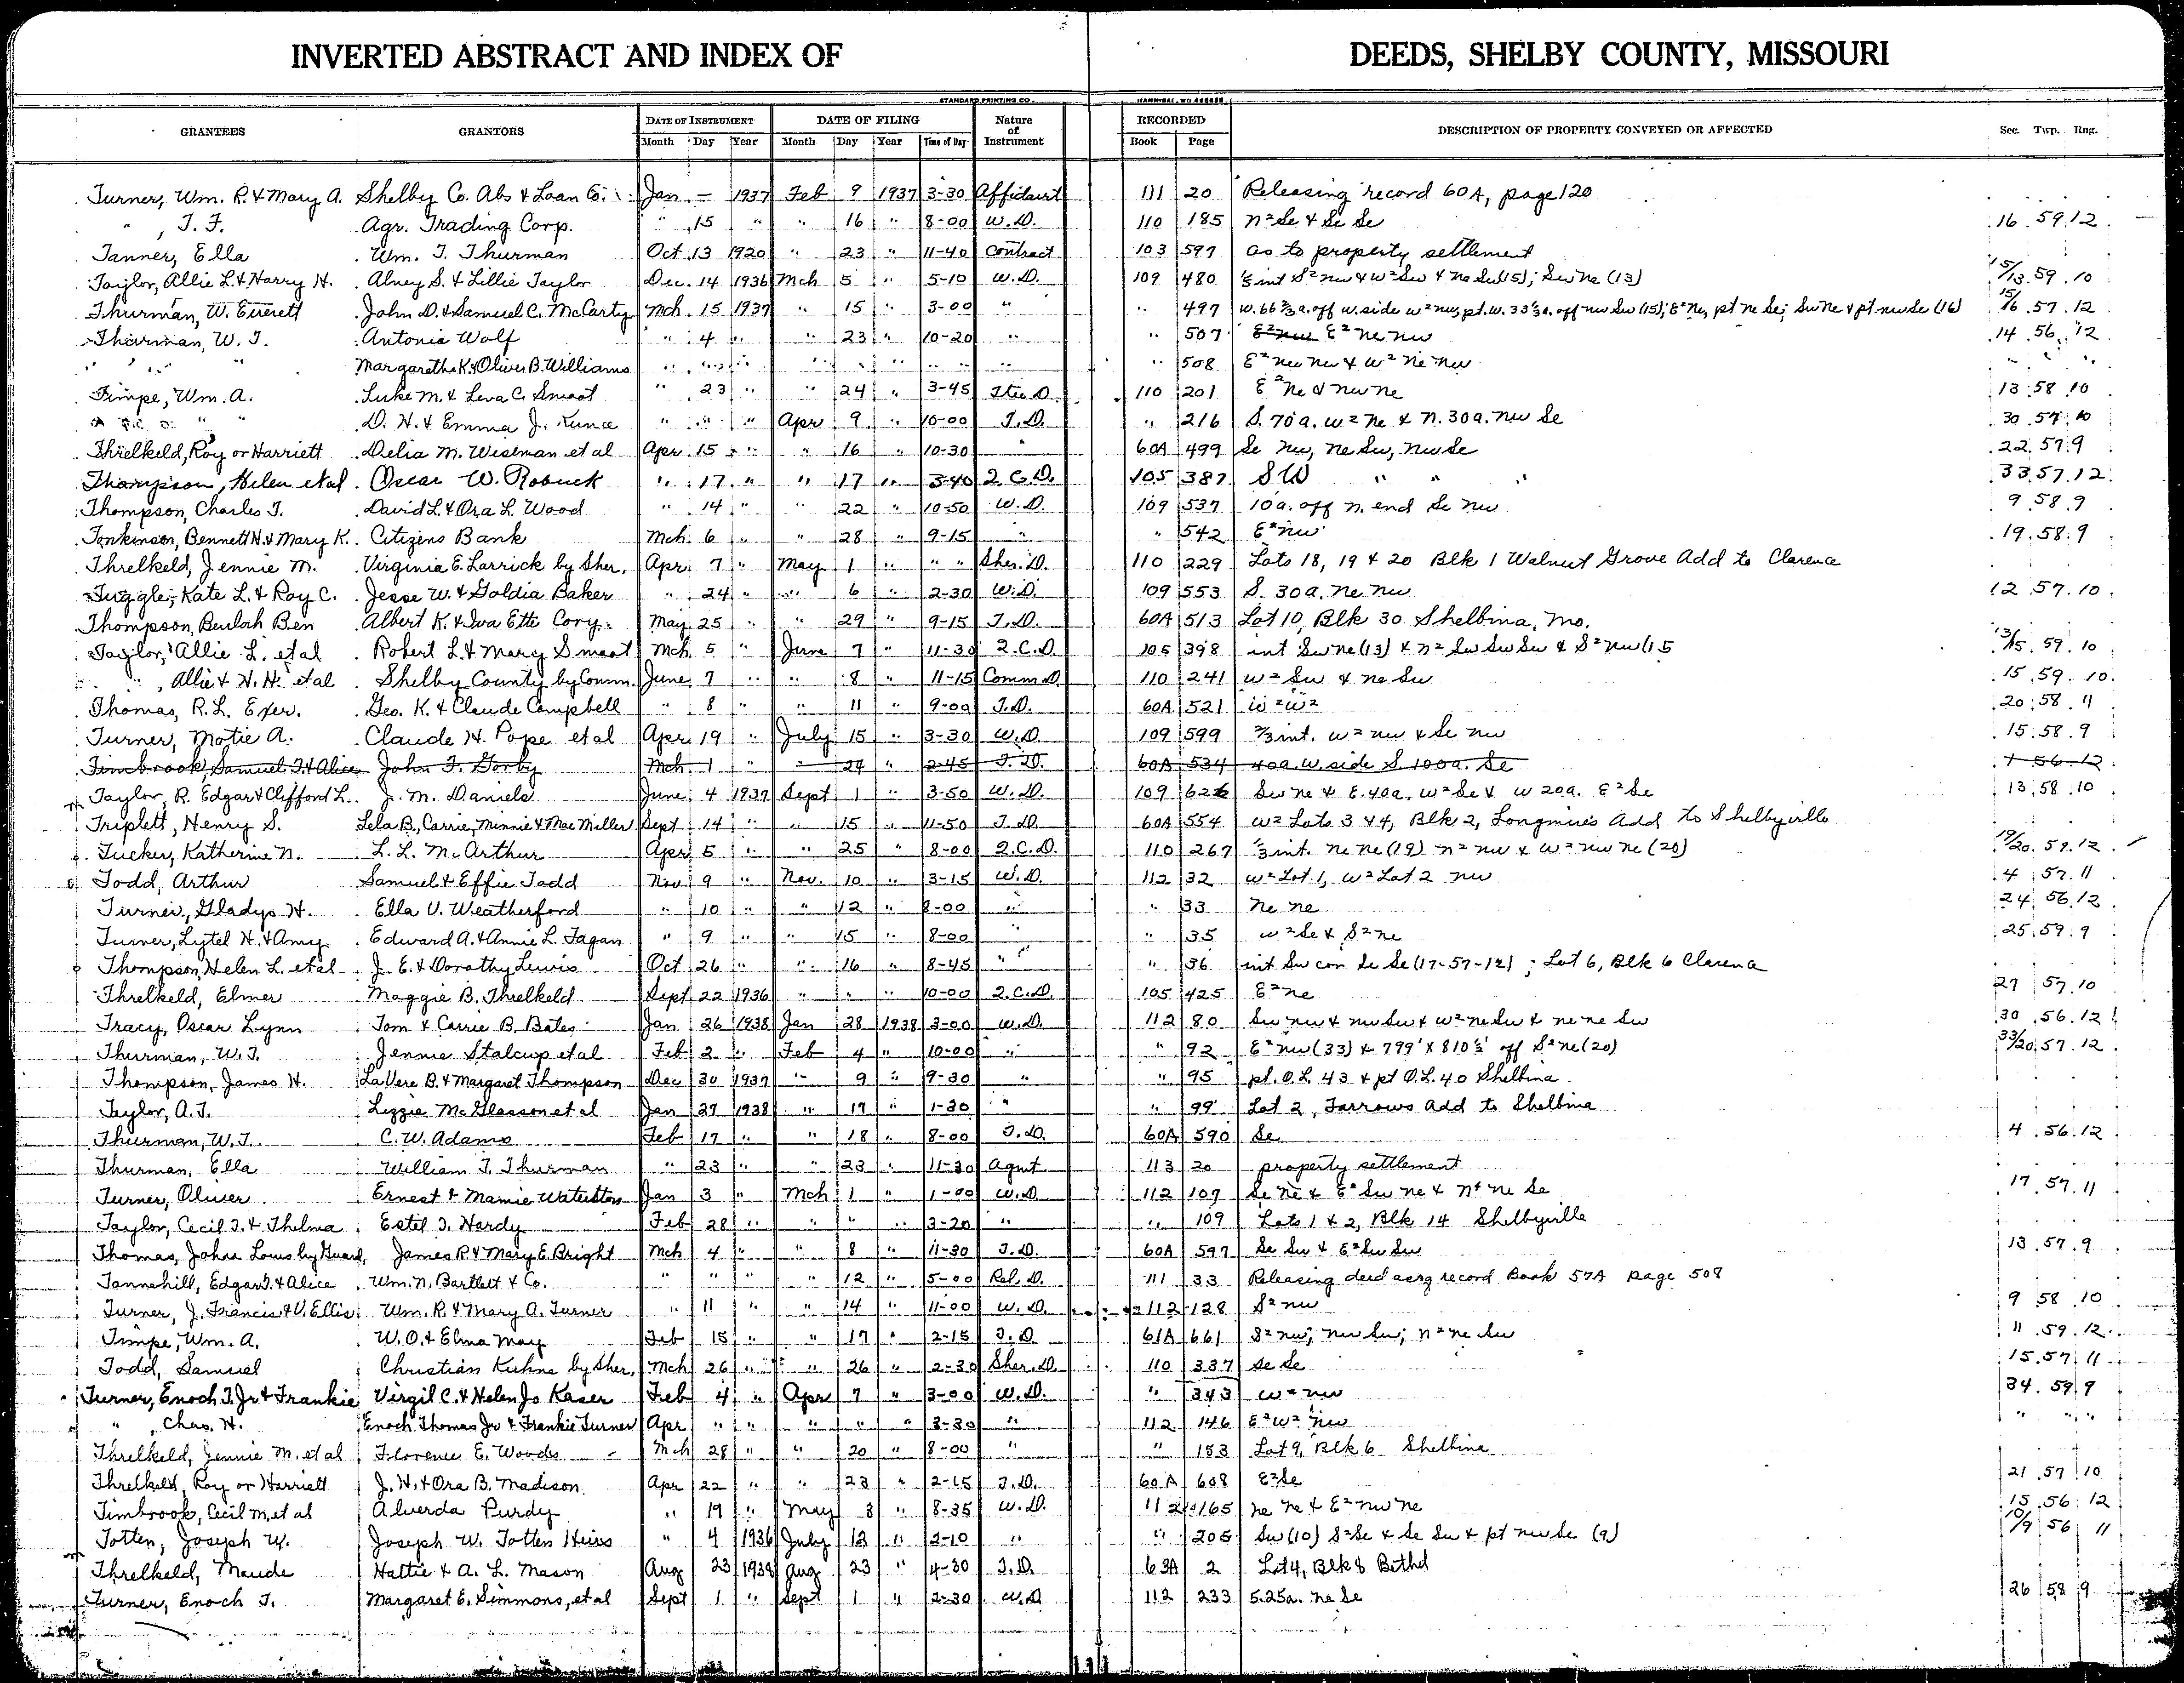 INVERTED ABSTRACT AND INDEX OF DEEDS, SHELBY COUNTY, MISSOURI
STANDARD PRINTING CO. HANNIBAL, MO
GRANTEES GRANTORS DATE OF INSTRUMENT DATE OF FILING Nature of Instrument RECORDED DESCRIPTION OF PROPERTY CONVEYED OR AFFECTED Sec. Twp. Rng.
Month Day Year Month Day Year Time of Day Book Page
Turner, Wm. R. & Mary A. Shelby Co. Abs & Loan Co. Jan — 1937 Feb 9 1937 3-30 Affidavit 111 20 Releasing record 60A, page 120
" , T. F. Agr. Trading Corp. " 15 " " 16 " 8-00 W.D. 110 185 n² Se & Se Se 16 59 12
Tanner, Ella Wm. T. Thurman Oct 13 1920 " 23 " 11-40 Contract 103 597 as to property settlement
Taylor, Allie L. & Harry H. Alney S. & Lillie Taylor Dec 14 1936 Mch 5 " 5-10 W.D. 109 480 ⅓ int S² nw & w² Sw & ne Sw (15); Sw ne (13) 15/13 59 10
Thurman, W. Everett John D. & Samuel C. McCarty Mch 15 1937 " 15 " 3-00 " " 497 W. 66⅔ a. off w. side w² nw, pt. w. 33⅓ a. off nw Sw (15); E² ne, pt ne Se; Sw ne & pt nw Se (16) 15/16 57 12
Thurman, W. T. Antonia Wolf " 4 " " 23 " 10-20 " " 507 E² nw E² ne nw 14 56 12
" " " Margaretha K. & Oliver B. Williams " " " " " " " " " 508 E² nw nw & w² ne nw " " "
Timpe, Wm. A. Luke M. & Leva C. Smoot " 23 " " 24 " 3-45 Stee D. 110 201 E² ne & nw ne 13 58 10
" " " D. H. & Emma J. Kunce " " " Apr 9 " 10-00 T.D. " 216 S. 70 a. w² ne & n. 30 a. nw Se 30 57 10
Threlkeld, Roy or Harriett Delia M. Wiseman et al Apr 15 " " 16 " 10-30 " 60A 499 Se nw, ne Sw, nw Se 22 57 9
Thompson, Helen et al Oscar W. Robuck " 17 " " 17 " 3-40 2.C.D. 105 387 SW " " " 33 57 12
Thompson, Charles T. David L. & Ora L. Wood " 14 " " 22 " 10-50 W.D. 109 537 10 a. off n. end Se nw 9 58 9
Tonkinson, Bennett H. & Mary K. Citizens Bank Mch 6 " " 28 " 9-15 " " 542 E² nw 19 58 9
Threlkeld, Jennie M. Virginia E. Larrick by Sher. Apr 7 " May 1 " " " Sher. D. 110 229 Lots 18, 19 & 20 Blk 1 Walnut Grove Add to Clarence
Tuggle, Kate L. & Roy C. Jesse W. & Goldia Baker " 24 " " 6 " 2-30 W.D. 109 553 S. 30 a. ne nw 12 57 10
Thompson, Beulah Ben Albert K. & Iva Ette Cory May 25 " " 29 " 9-15 T.D. 60A 513 Lot 10, Blk 30 Shelbina, Mo.
Taylor, Allie L. et al Robert L. & Mary Smoot Mch 5 " June 7 " 11-30 2.C.D. 105 398 int Sw ne (13) & n² Sw Sw Sw & S² nw (15 13/15 59 10
" , Allie & H. H. et al Shelby County by Comm. June 7 " " 8 " 11-15 Comm D. 110 241 w² Sw & ne Sw 15 59 10
Thomas, R. L. Exer. Geo. K. & Claude Campbell " 8 " " 11 " 9-00 T.D. 60A 521 w² w² 20 58 11
Turner, Motie A. Claude H. Pope et al Apr 19 " July 15 " 3-30 W.D. 109 599 ⅔ int. w² nw & Se nw 15 58 9
Timbrook, Samuel T. & Alice John F. Gorby Mch 1 " " 24 " 2-45 T.D. 60A 534 40 a. w. side S. 100 a. Se 1 56 12
Taylor, R. Edgar & Clifford L. J. M. Daniels June 4 1937 Sept 1 " 3-50 W.D. 109 626 Sw ne & E. 40 a. w² Se & w 20 a. E² Se 13 58 10
Triplett, Henry S. Lela B., Carrie, Minnie & Mae Miller Sept 14 " " 15 " 11-50 T.D. 60A 554 w² Lots 3 & 4, Blk 2, Longmires Add to Shelbyville
Tucker, Katherine N. L. L. McArthur Apr 5 " " 25 " 8-00 2.C.D. 110 267 ⅓ int. ne ne (19) n² nw & w² nw ne (20) 19/20 59 12
Todd, Arthur Samuel & Effie Todd Nov 9 " Nov. 10 " 3-15 W.D. 112 32 w² Lot 1, w² Lot 2 nw 4 57 11
Turner, Gladys H. Ella V. Weatherford " 10 " " 12 " 8-00 " " 33 ne ne 24 56 12
Turner, Lytel H. & Amy Edward A. & Annie L. Fagan " 9 " " 15 " 8-00 " " 35 w² Se & S² ne 25 59 9
Thompson, Helen L. et al J. E. & Dorothy Lewis Oct 26 " " 16 " 8-45 " " 36 int Sw cor Se Se (17-57-12); Lot 6, Blk 6 Clarence
Threlkeld, Elmer Maggie B. Threlkeld Sept 22 1936 " " " 10-00 2.C.D. 105 425 E² ne 27 57 10
Tracy, Oscar Lynn Tom & Carrie B. Bates Jan 26 1938 Jan 28 1938 3-00 W.D. 112 80 Sw nw & nw Sw & w² ne Sw & ne ne Sw 30 56 12
Thurman, W. T. Jennie Stalcup et al Feb 2 " Feb 4 " 10-00 " " 92 E² nw (33) & 799' x 810½' off S² ne (20) 33/20 57 12
Thompson, James H. LaVere B. & Margaret Thompson Dec 30 1937 " 9 " 9-30 " " 95 pt. O.L. 43 & pt O.L. 40 Shelbina
Taylor, A. T. Lizzie McGlasson et al Jan 27 1938 " 17 " 1-30 " " 99 Lot 2, Farrows Add to Shelbina
Thurman, W. T. C. W. Adams Feb 17 " " 18 " 8-00 T.D. 60A 590 Se 4 56 12
Thurman, Ella William T. Thurman " 23 " " 23 " 11-30 Agmt. 113 20 property settlement
Turner, Oliver Ernest & Mamie Waterston Jan 3 " Mch 1 " 1-00 W.D. 112 107 Se ne & E² Sw ne & n⁴ ne Se 17 57 11
Taylor, Cecil T. & Thelma Estel T. Hardy Feb 28 " " " " 3-20 " " 109 Lots 1 & 2, Blk 14 Shelbyville
Thomas, John Louis by Guard. James R. & Mary E. Bright Mch 4 " " 8 " 11-30 T.D. 60A 597 Se Sw & E² Sw Sw 13 57 9
Tannehill, Edgar T. & Alice Wm. N. Bartlett & Co. " " " " 12 " 5-00 Rel. D. 111 33 Releasing deed asrg record Book 57A page 508
Turner, J. Francis & V. Ellis Wm. R. & Mary A. Turner " 11 " " 14 " 11-00 W.D. 112 128 S² nw 9 58 10
Timpe, Wm. A. W. O. & Elma May Feb 15 " " 17 " 2-15 T.D. 61A 661 S² nw; nw Sw; n² ne Sw 11 59 12
Todd, Samuel Christian Kuhne by Sher. Mch 26 " " 26 " 2-30 Sher. D. 110 337 Se Se 15 57 11
Turner, Enoch T. Jr & Frankie Virgil C. & Helen Jo Kaser Feb 4 " Apr 7 " 3-00 W.D. " 343 w² nw 34 59 9
" Chas. H. Enoch Thomas Jr & Frankie Turner Apr " " " " " 3-30 " 112 146 E² w² nw " " "
Threlkeld, Jennie M. et al Florence E. Woods Mch 28 " " 20 " 8-00 " " 153 Lot 9, Blk 6 Shelbina
Threlkeld, Roy or Harriett J. H. & Ora B. Madison Apr 22 " " 23 " 2-15 T.D. 60A 608 E² Se 21 57 10
Timbrook, Cecil M. et al Alverda Purdy " 19 " May 3 " 8-35 W.D. 112 165 ne ne & E² nw ne 15 56 12
Totten, Joseph W. Joseph W. Totten Heirs " 4 1936 July 12 " 2-10 " " 205 Sw (10) S² Se & Se Sw & pt nw Se (9) 10/9 56 11
Threlkeld, Maude Hattie & A. L. Mason Aug 23 1938 Aug 23 " 4-30 T.D. 63A 2 Lot 4, Blk 8 Bethel
Turner, Enoch T. Margaret E. Simmons, et al Sept 1 " Sept 1 " 2-30 W.D. 112 233 5.25 a. ne Se 26 58 9